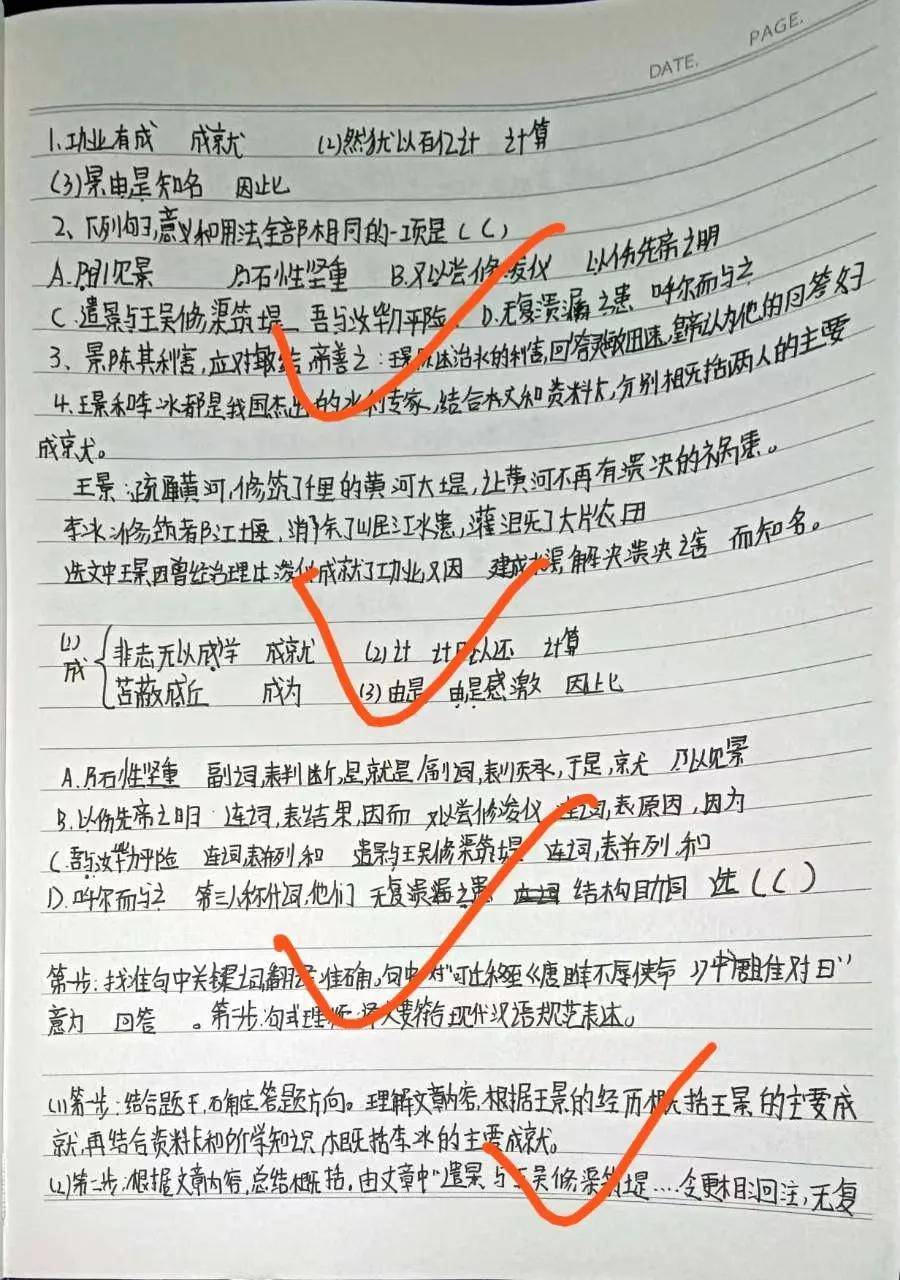 DATE. PAGE.
1.功业有成 成就 (2)然犹以百亿计 计算
(3)景由是知名 因此
2、下列句子,意义和用法全部相同的一项是(C)
A.乃引见景 乃石性坚重 B.又以尝修浚仪 以伤先帝之明
C.遣景与王吴修渠筑堤 吾与汝毕力平险 D.无复溃漏之患 呼尔而与之
3、景陈其利害,应对敏给,帝善之:王景陈述治水的利害,回答灵敏迅速,皇帝认为他的回答好
4.王景和李冰都是我国杰出的水利专家,结合本文和资料卡,分别概括两人的主要
成就。
王景:疏通黄河,修筑了千里的黄河大堤,让黄河不再有溃决的祸患。
李冰:修筑都江堰,消除了岷江水患,灌溉了大片农田
选文中王景因曾经治理过浚仪成就了功业,又因 建成水渠,解决溃决之害 而知名。
(1)成 非志无以成学 成就 (2)计 计日以还 计算
苔蔽成丘 成为 (3)由是 由是感激 因此
A.乃石性坚重 副词,表判断,是,就是 副词,表顺承,于是,就 乃以见景
B.以伤先帝之明 连词,表结果,因而 又以尝修浚仪 连词,表原因,因为
C.吾与汝毕力平险 连词,表并列,和 遣景与王吴修渠筑堤 连词,表并列,和
D.呼尔而与之 第三人称代词,他们 无复溃漏之患 结构助词 选(C)
第一步:找准句中关键词,翻译准确,句中"对"可迁移至《唐雎不辱使命》中"唐雎对曰"
意为 回答 。第二步:句式理顺,译文要符合现代汉语规范表述。
(1)第一步:结合题干,确定答题方向。理解文章内容,根据王景的经历概括王景的主要成
就,再结合资料卡和所学知识,概括李冰的主要成就。
(2)第二步:根据文章内容,总结概括,由文章中"遣景与王吴修渠筑堤……令更相洄注,无复